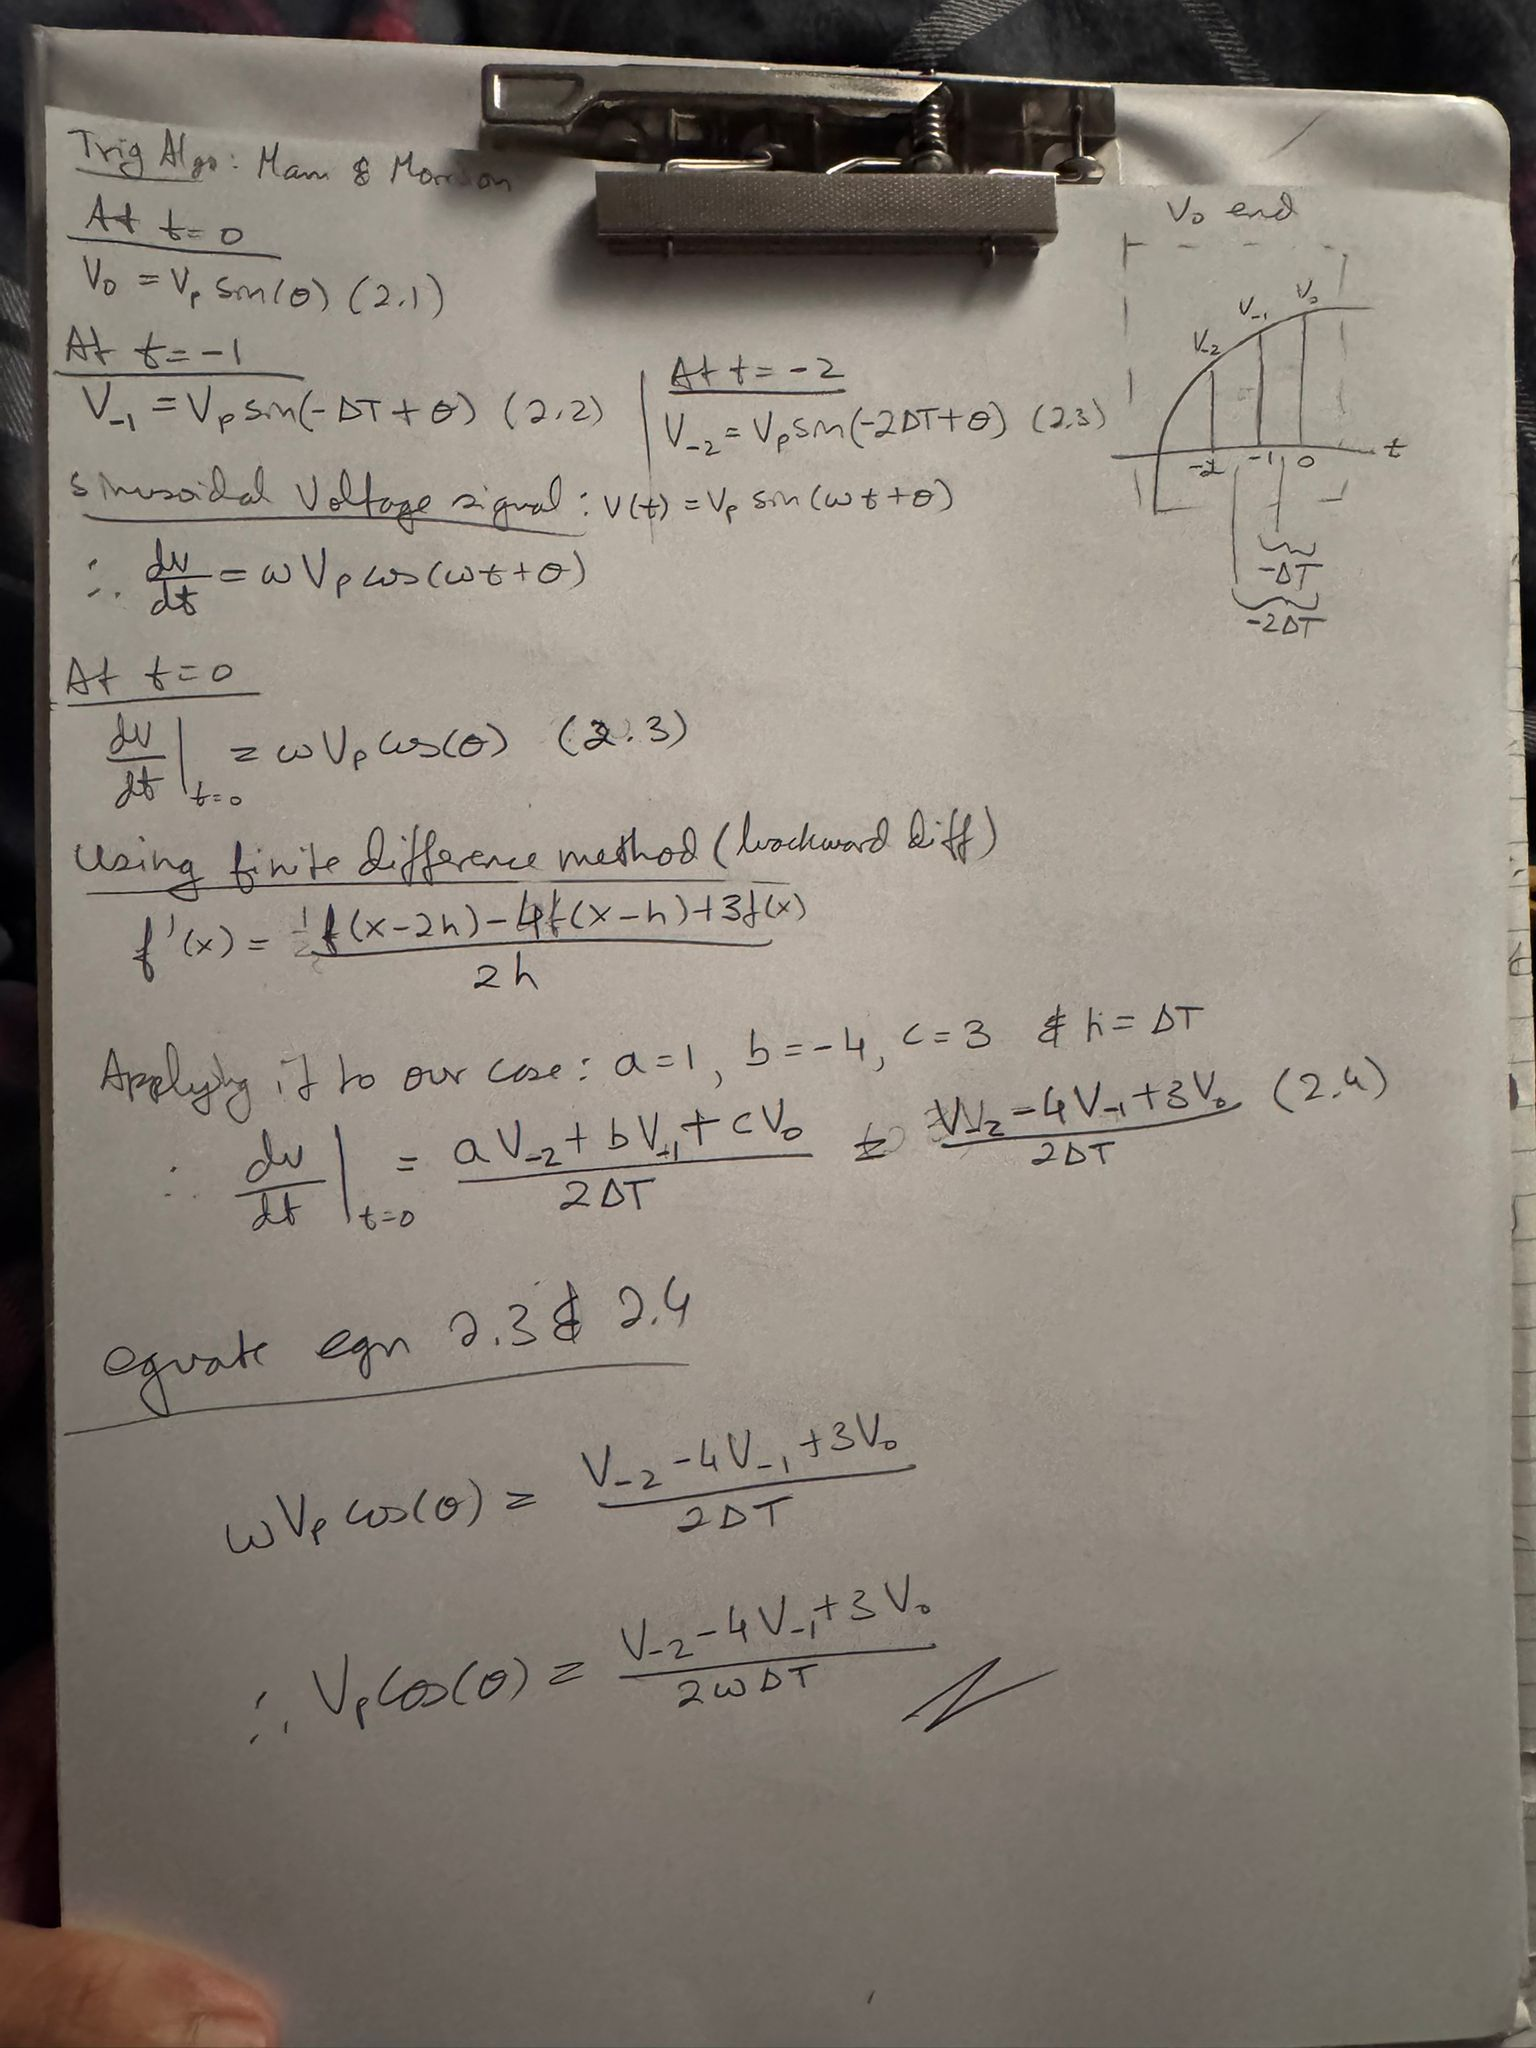 Trig Algo: Mann & Morrison
At t=0
V₀ = Vₚ sin(θ) (2.1)
At t=-1
V₋₁ = Vₚ sin(-ΔT + θ) (2.2)
At t=-2
V₋₂ = Vₚ sin(-2ΔT+θ) (2.3)
V₀ end
V₋₂ V₋₁ V₀
-2 -1 0 t
-ΔT
-2ΔT
Sinusoidal Voltage signal: V(t) = Vₚ sin(ωt+θ)
∴ dv/dt = ωVₚcos(ωt+θ)
At t=0
dv/dt |t=0 = ωVₚcos(θ) (2.3)
Using finite difference method (backward diff)
f'(x) = (1f(x-2h)-4f(x-h)+3f(x))/2h
Applying it to our case: a=1, b=-4, c=3 & h=ΔT
∴ dv/dt |t=0 = (aV₋₂+bV₋₁+cV₀)/2ΔT = (V₋₂-4V₋₁+3V₀)/2ΔT (2.4)
equate eqn 2.3 & 2.4
ωVₚcos(θ) = (V₋₂-4V₋₁+3V₀)/2ΔT
∴ Vₚcos(θ) = (V₋₂-4V₋₁+3V₀)/2ωΔT